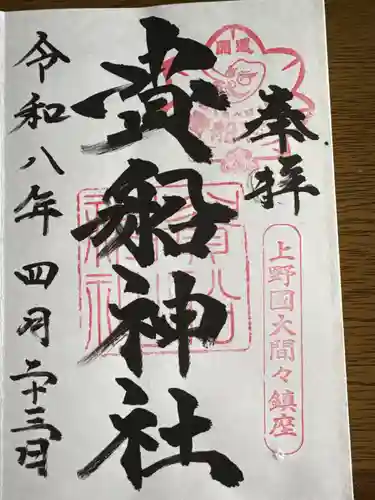 奉拝
開運
上野国大間々鎮座
貴船神社
貴船神社
令和八年四月二十三日